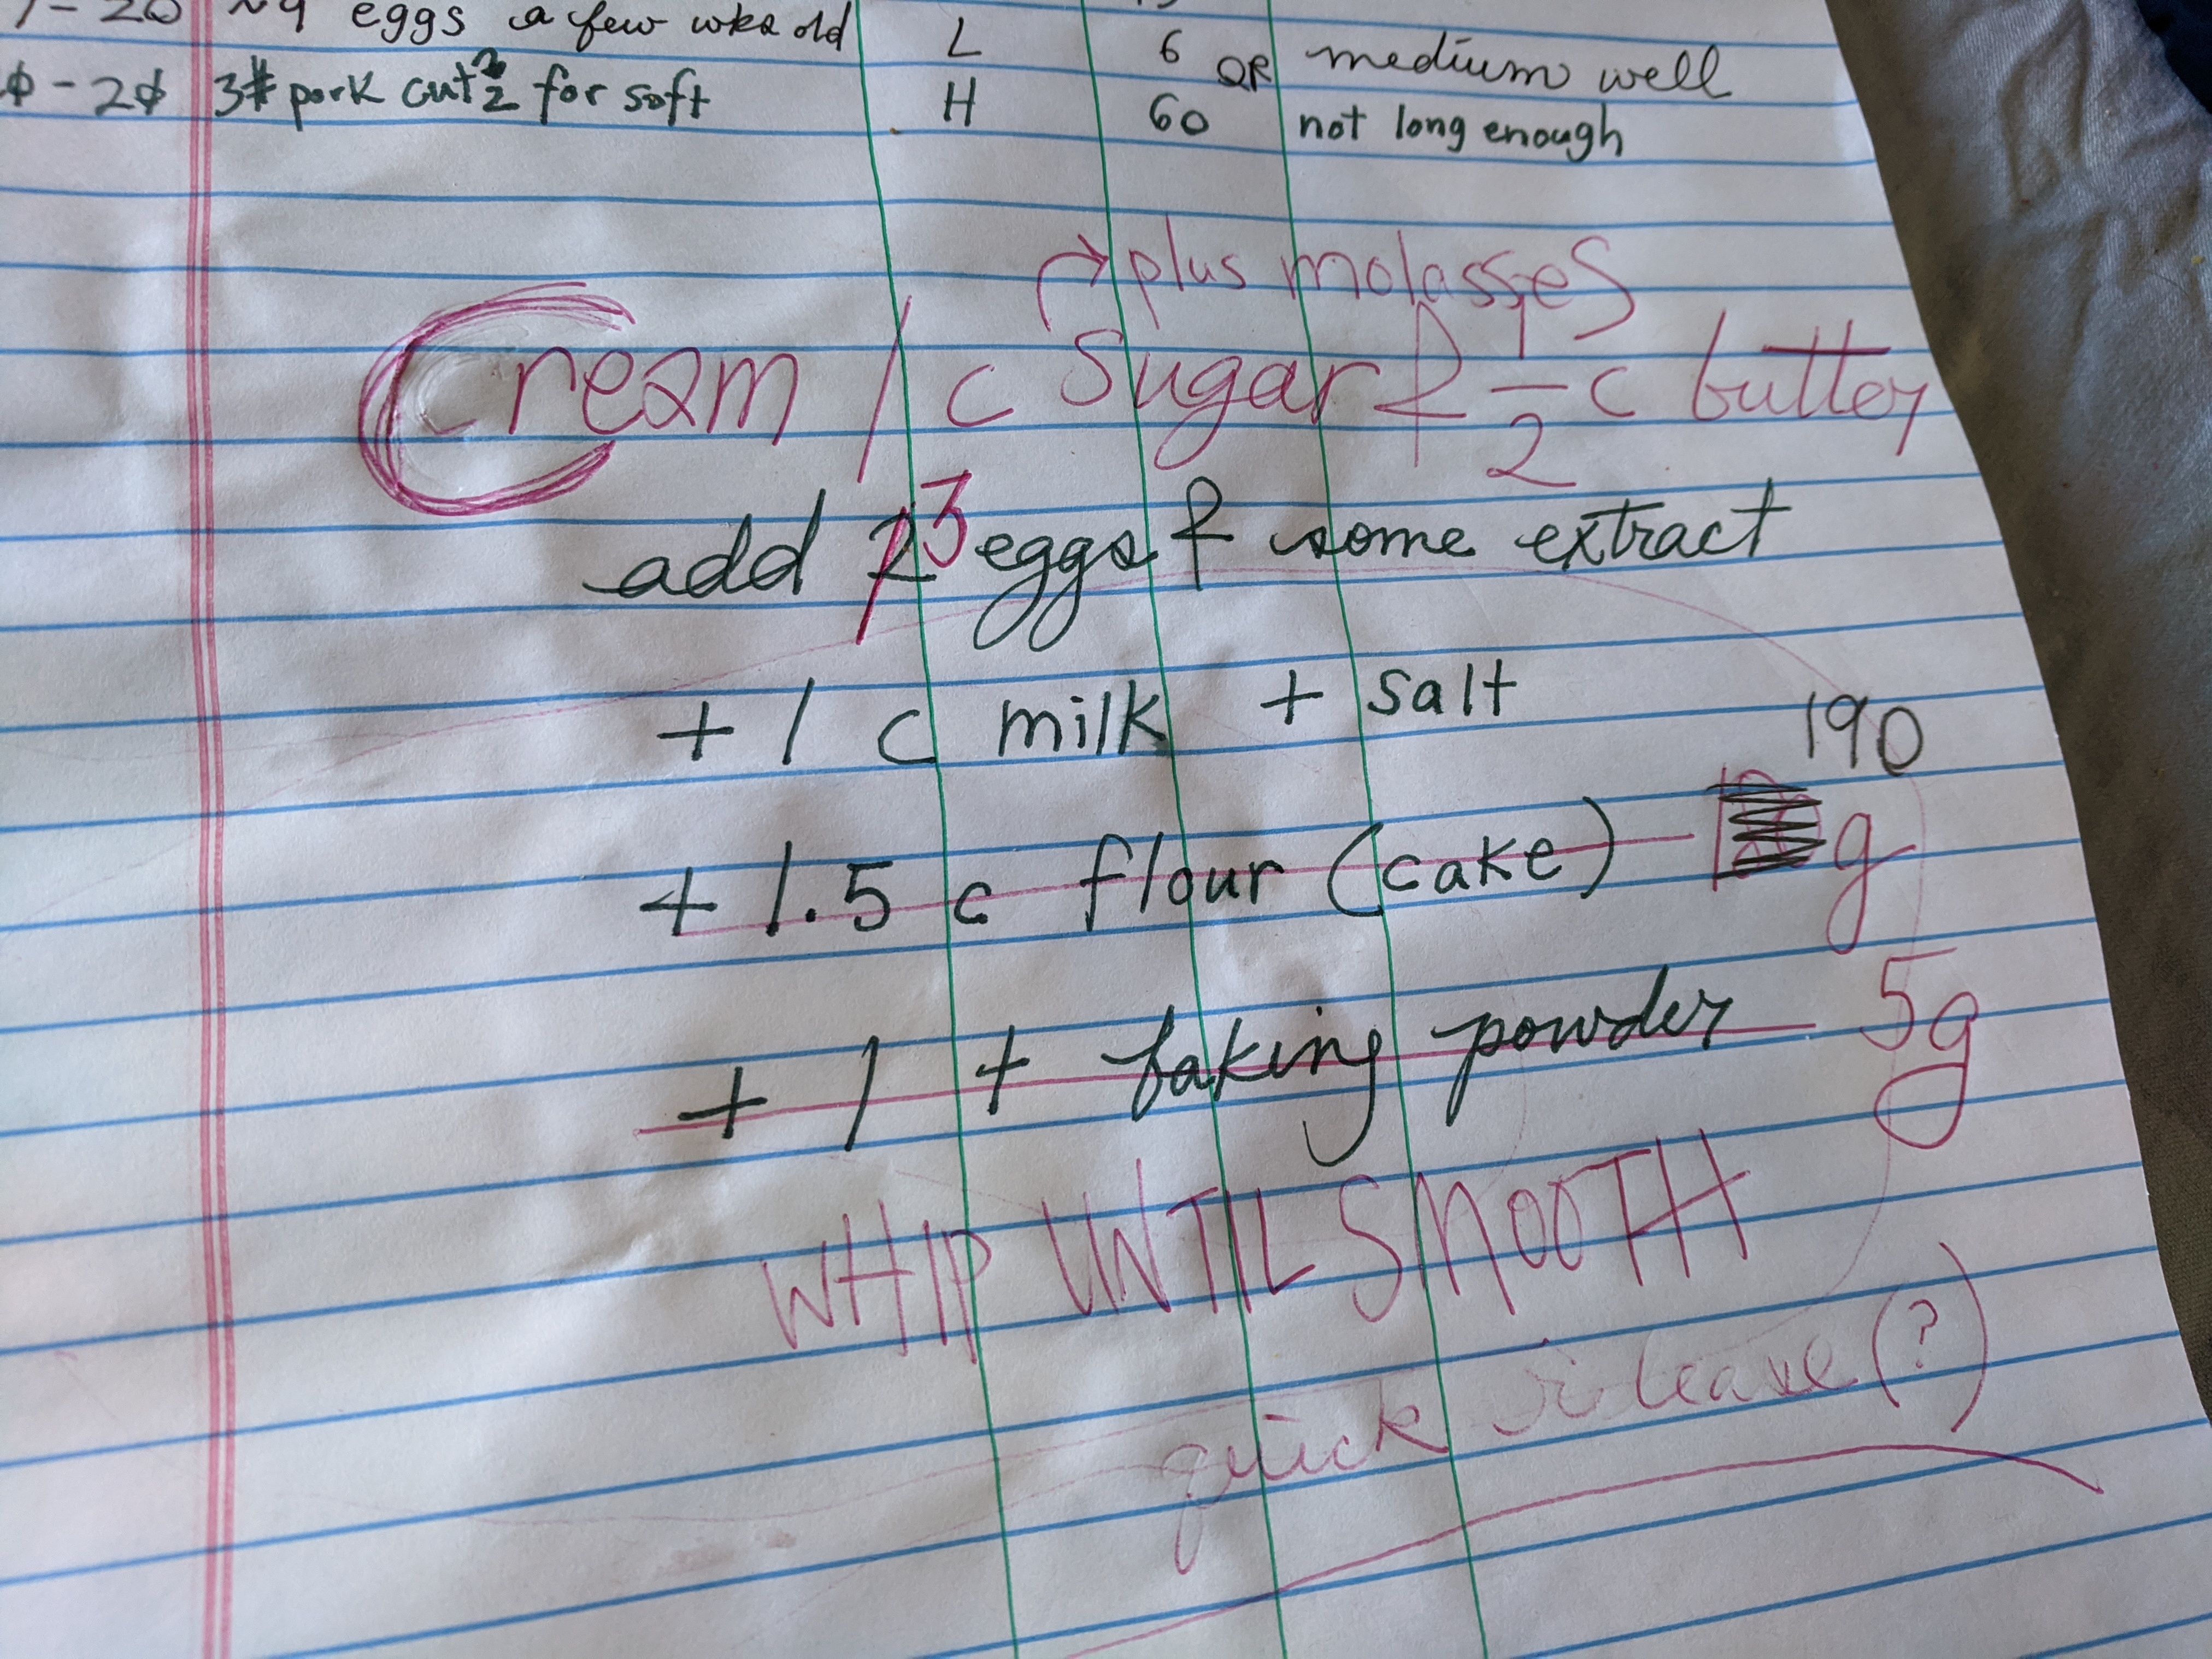 eggs a few wks old L 6 OR medium well
3# pork cut 2 for soft H 60 not long enough
plus molasses
Cream 1 c sugar & 1/2 c butter
add 3 eggs & some extract
+ 1 c milk + salt
190
+ 1.5 c flour (cake) g
+ 1 t baking powder 5g
WHIP UNTIL SMOOTH
quick release (?)